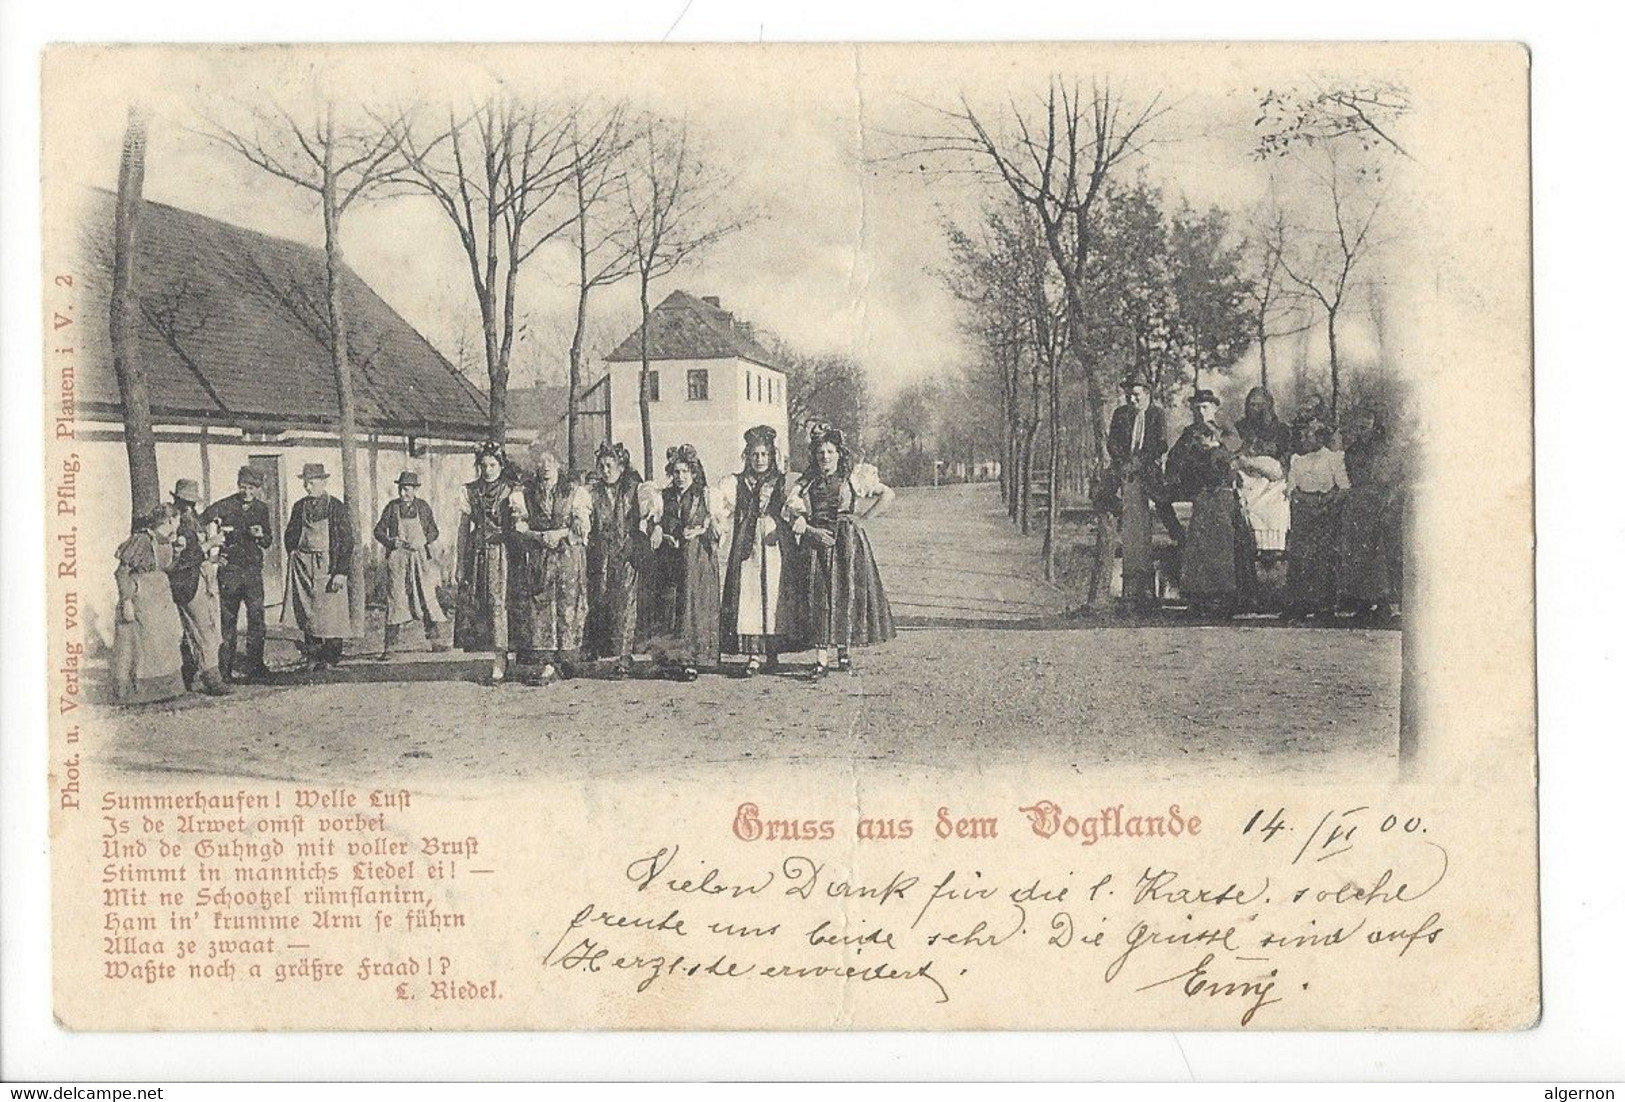 Phot. u. Verlag von Rud. Pflug, Plauen i V. 2
Summerhaufen! Welle Lust
Is de Arwet omst vorbei
Und de Guhngd mit voller Brust
Stimmt in mannichs Liedel ei! —
Mit ne Schootzel rümflanirn,
Ham in' krumme Arm se führn
Allaa ze zwaat —
Waßte noch a gräßre Fraad!?
C. Riedel.
Gruss aus dem Vogtlande
14. / VI 00.
Vielen Dank für die l. Karte. solche
freute uns beide sehr. Die Grüsse sind aufs
Herzlichste erwiedert.
delcampe.net
algernon